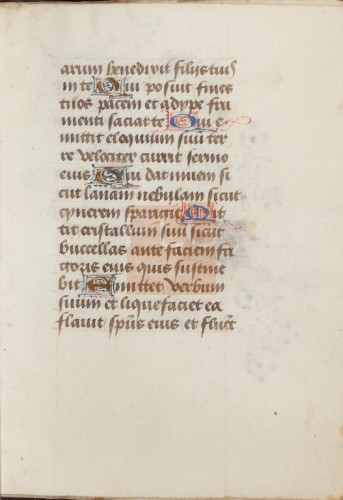 arum benedixit filijs tuis
in te Qui posuit fines
tuos pacem et adype fru
menti saciat te Qui e
mittit eloquium suu ter
re velociter currit sermo
eius Qui dat niuem si
cut lanam nebulam sicut
cynerem spargit Mit
tit cristallum suu sicut
buccellas ante faciem fri
goris eius quis sustine
bit Emittet verbum
suum et liquefaciet ea
flauit spūs eius et fluēt